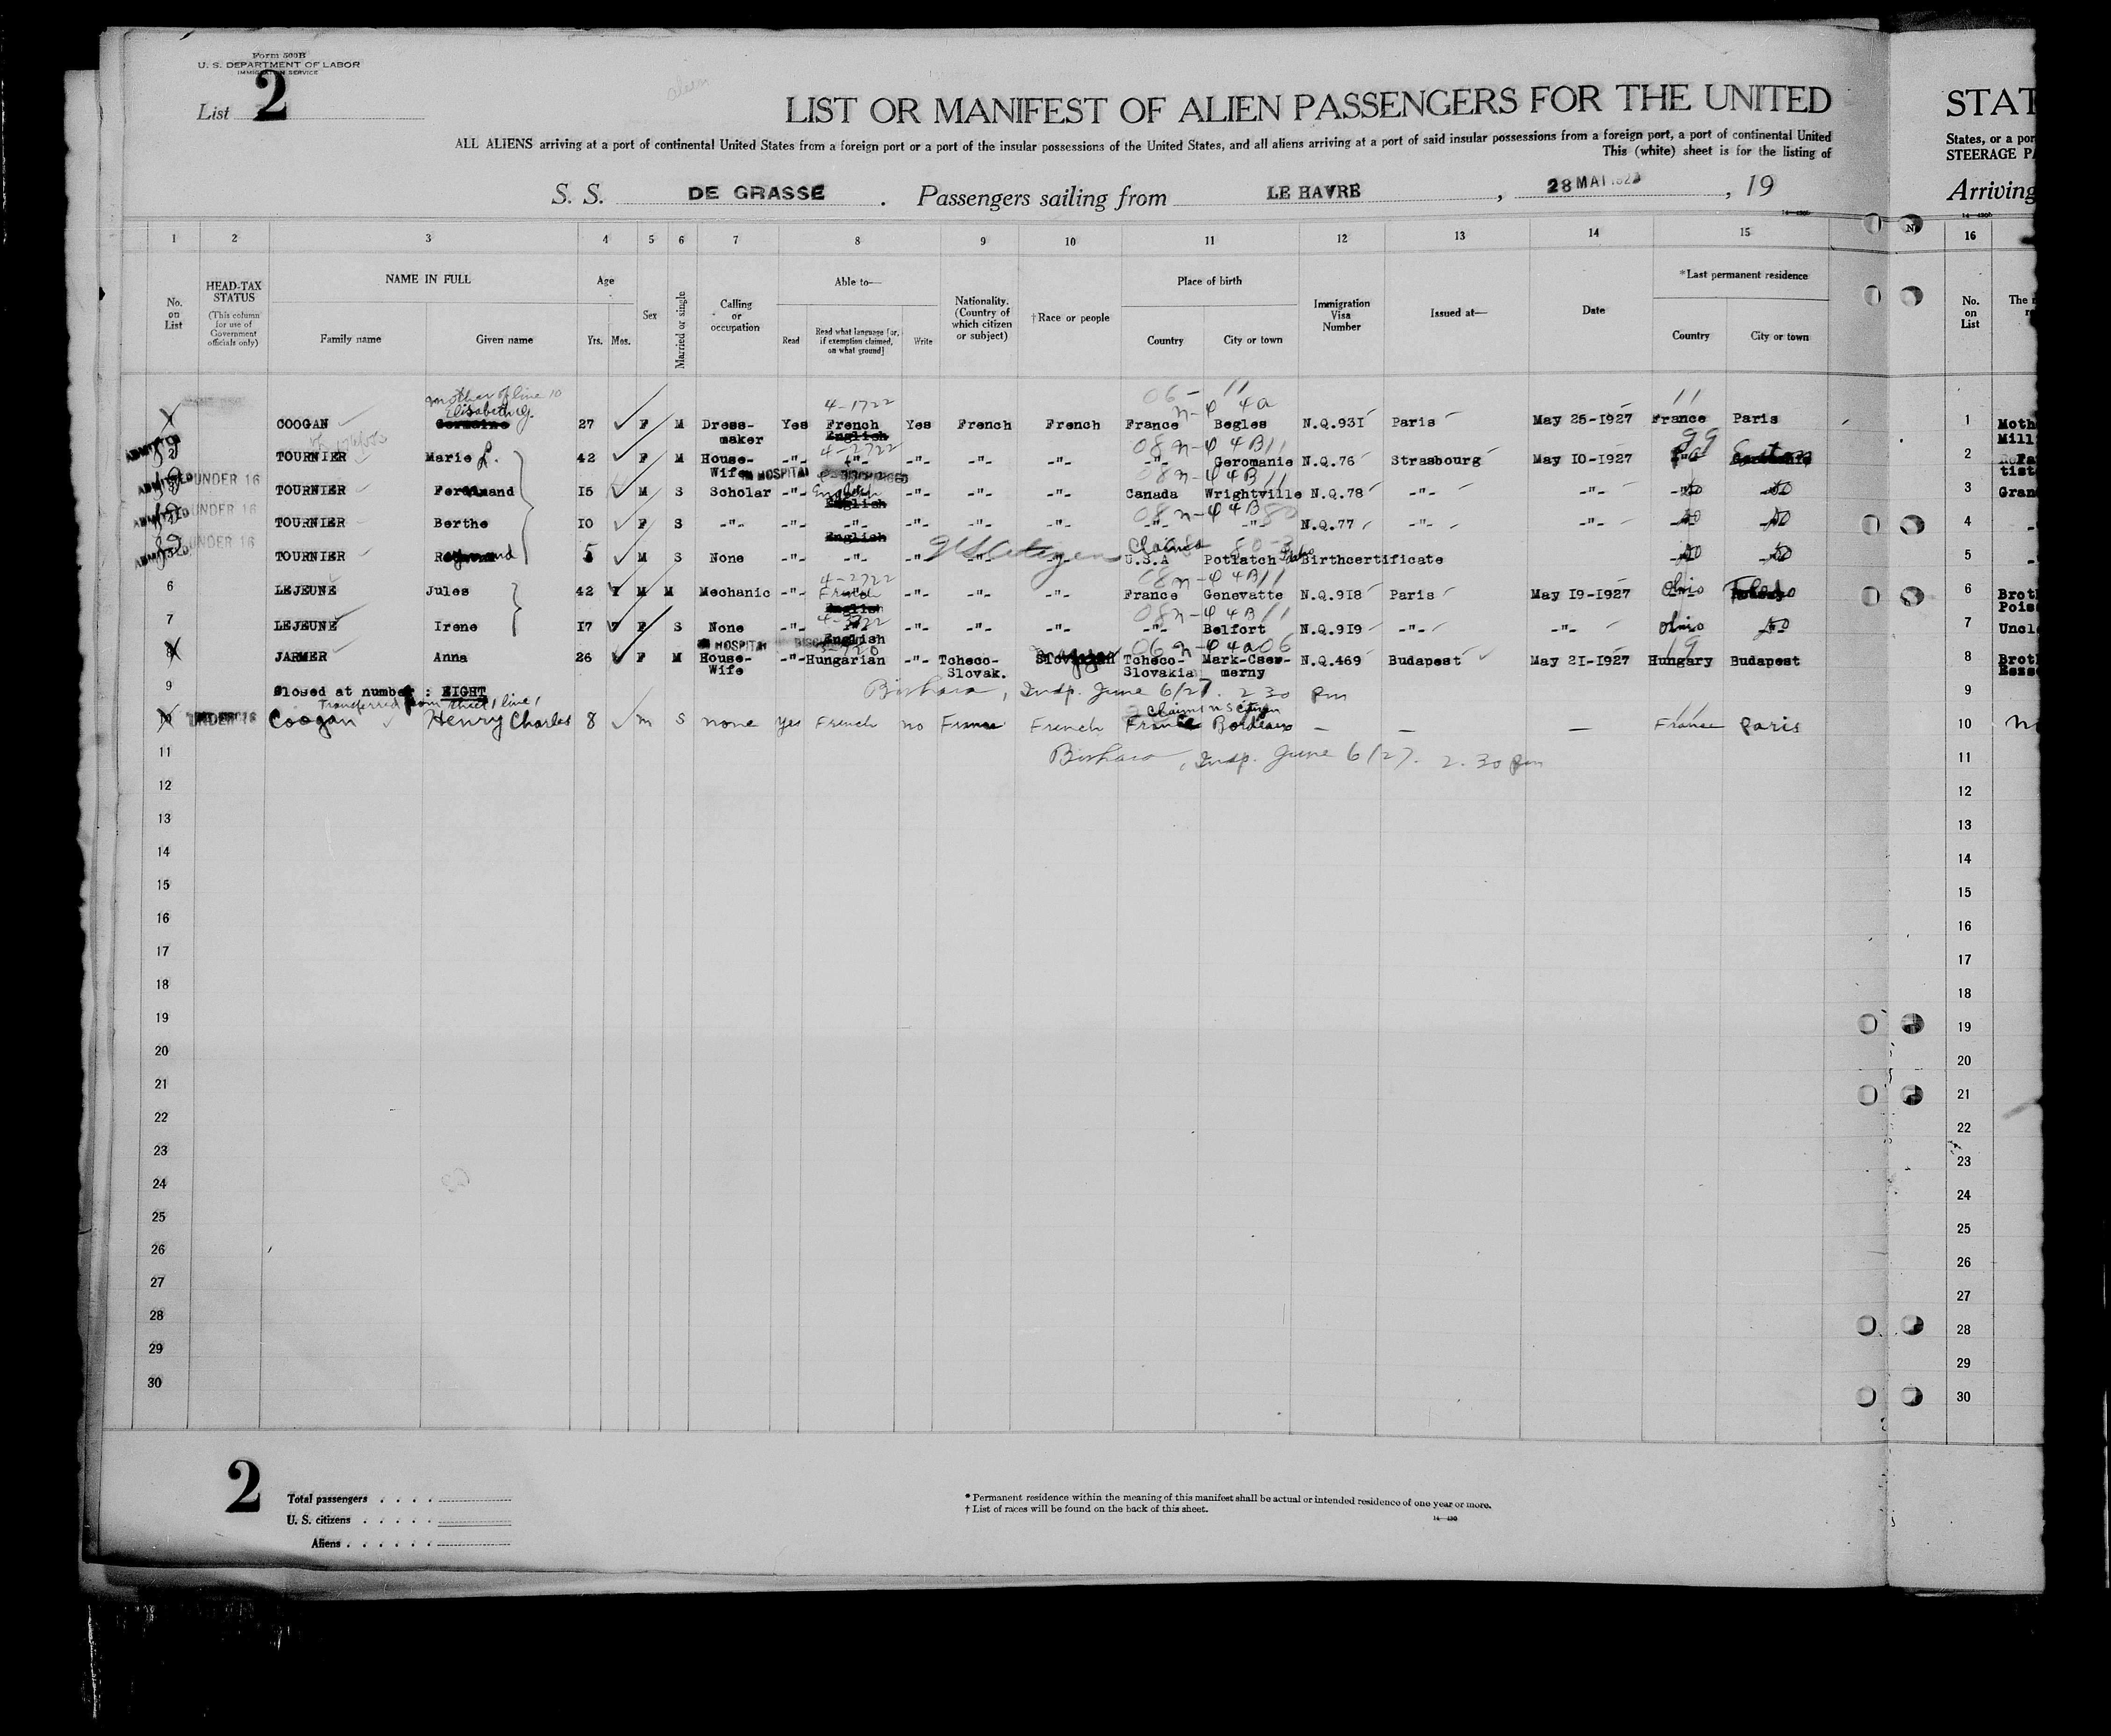 Form 500B
U. S. DEPARTMENT OF LABOR
IMMIGRATION SERVICE
List 2
LIST OR MANIFEST OF ALIEN PASSENGERS FOR THE UNITED
STAT
ALL ALIENS arriving at a port of continental United States from a foreign port or a port of the insular possessions of the United States, and all aliens arriving at a port of said insular possessions from a foreign port, a port of continental United
States, or a por
This (white) sheet is for the listing of
STEERAGE PA
S. S. DE GRASSE . Passengers sailing from LE HAVRE , 28 MAI , 19
Arriving
1 2 3 4 5 6 7 8 9 10 11 12 13 14 15 16
No. on List
HEAD-TAX STATUS
(This column for use of Government officials only)
NAME IN FULL
Family name
Given name
Age
Yrs. Mos.
Sex
Married or single
Calling or occupation
Able to—
Read
Read what language [or, if exemption claimed, on what ground]
Write
Nationality. (Country of which citizen or subject)
†Race or people
Place of birth
Country
City or town
Immigration Visa Number
Issued at—
Date
*Last permanent residence
Country
City or town
No. on List
mother of line 10
06 - 11
11
4-1722
COOGAN Elisabeth 27 F M Dress-maker Yes French English Yes French French France Begles N.Q.931 Paris May 25-1927 France Paris 1 Moth
Mill
ADMITTED TOURNIER Marie L. 42 F M House-Wife -"- -"- -"- -"- -"- -"- Geromanie N.Q.76 Strasbourg May 10-1927 Pa 2
tist
HOSPITAL DISCHARGED
ADMITTED UNDER 16 TOURNIER Ferdinand 15 M S Scholar -"- English -"- -"- -"- Canada Wrightville N.Q.78 -"- -"- do do 3 Gran
ADMITTED UNDER 16 TOURNIER Berthe 10 F S -"- -"- -"- -"- -"- -"- -"- -"- N.Q.77 -"- -"- do do 4
English
US Citizen Claims
ADMITTED UNDER 16 TOURNIER Raymond 5 M S None -"- -"- -"- -"- U.S.A Potlatch Birthcertificate do do 5
4-2722
6 LEJEUNE Jules 42 M M Mechanic -"- French -"- -"- -"- France Genevatte N.Q.918 Paris May 19-1927 Ohio Toledo 6 Brot
Pois
7 LEJEUNE Irene 17 F S None -"- -"- -"- -"- -"- -"- Belfort N.Q.919 -"- -"- Ohio do 7 Uncl
HOSPITAL
English
8 JARMER Anna 26 F M House-Wife -"- Hungarian -"- Tcheco-Slovak. Tcheco-Slovakia Mark-Cser-merny N.Q.469 Budapest May 21-1927 Hungary Budapest 8 Brot
9 Closed at number : EIGHT Insp. June 6/27. 2 30 pm 9
Transferred from sheet 1 line 1
Claims US Citizen
10 UNDER 16 Coogan Henry Charles 8 m S none yes French no France French France Bordeaux — — — France Paris 10
11 Insp. June 6/27. 2.30 pm 11
12 12
13 13
14 14
15 15
16 16
17 17
18 18
19 19
20 20
21 21
22 22
23 23
24 24
25 25
26 26
27 27
28 28
29 29
30 30
2
Total passengers . . . .
U. S. citizens . . . . .
Aliens . . . . . .
* Permanent residence within the meaning of this manifest shall be actual or intended residence of one year or more.
† List of races will be found on the back of this sheet.
14—430